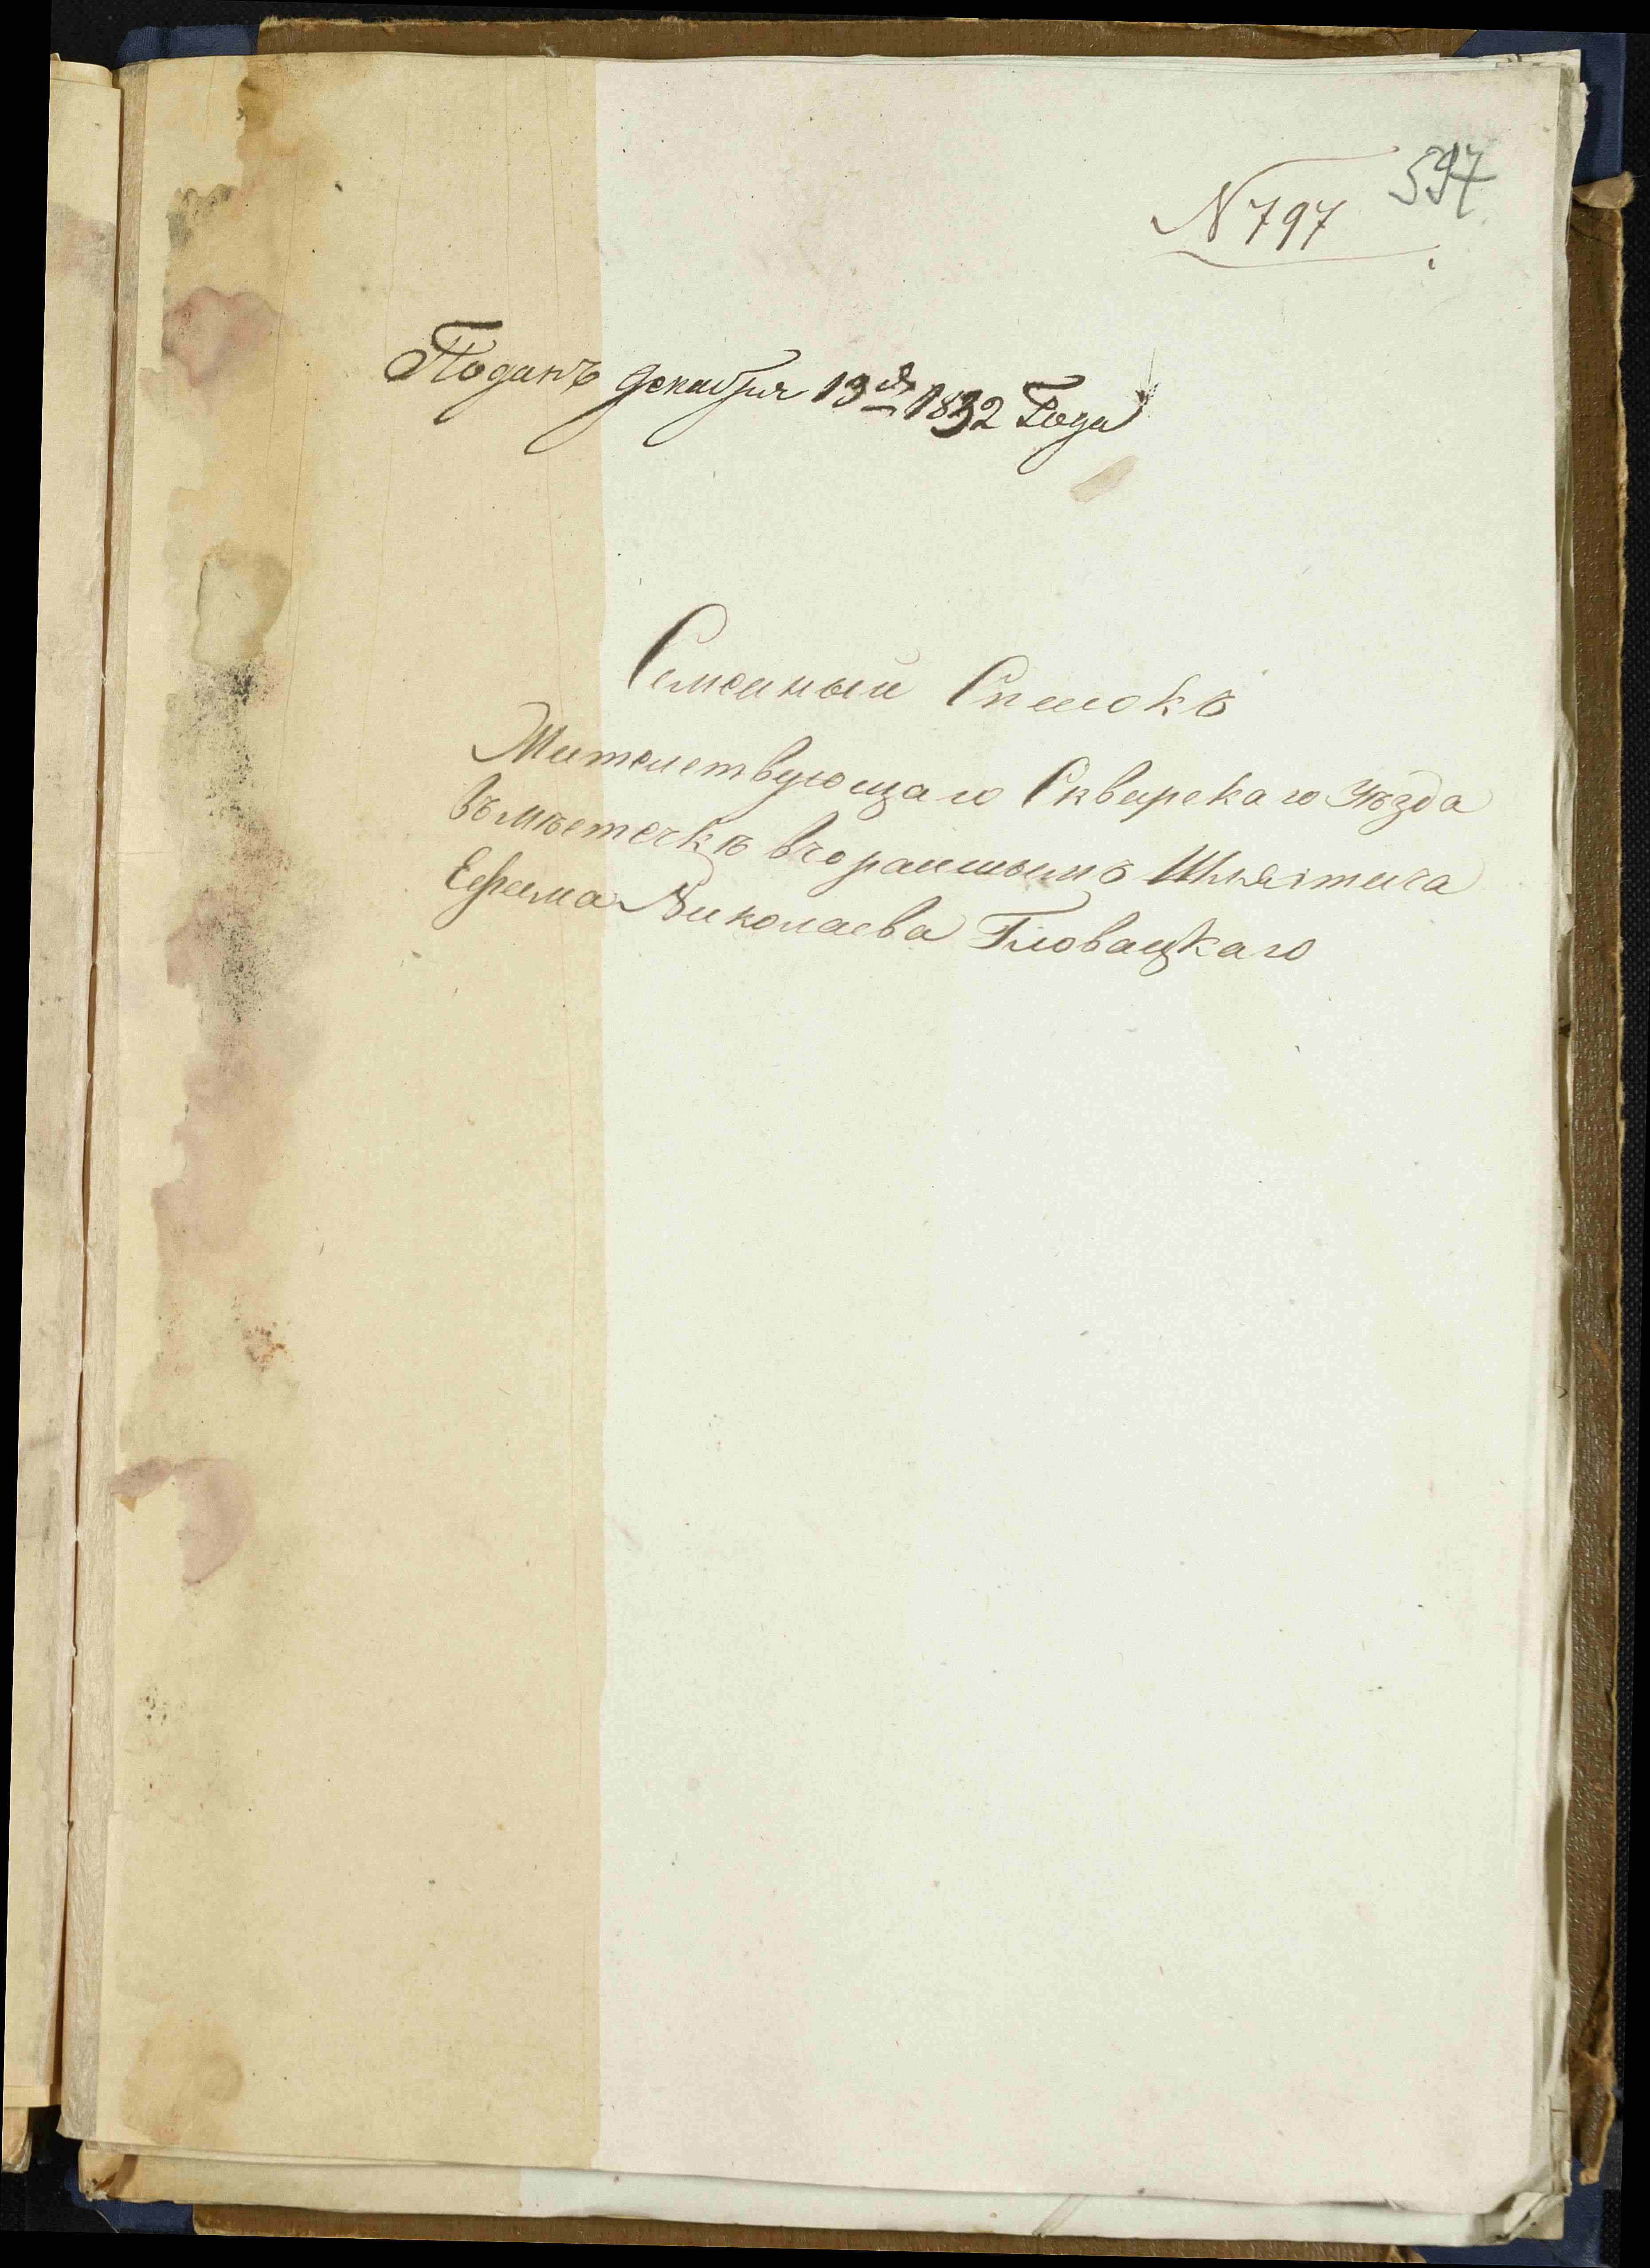 597
N 797
Поданъ декабря 19 д 1832 Года
Семейный Списокъ
Жительствующаго Сквирскаго Уѣзда
Въ мѣстечкѣ Вчорайшымъ Шляхтича
Ефима Николаева Гловацкаго